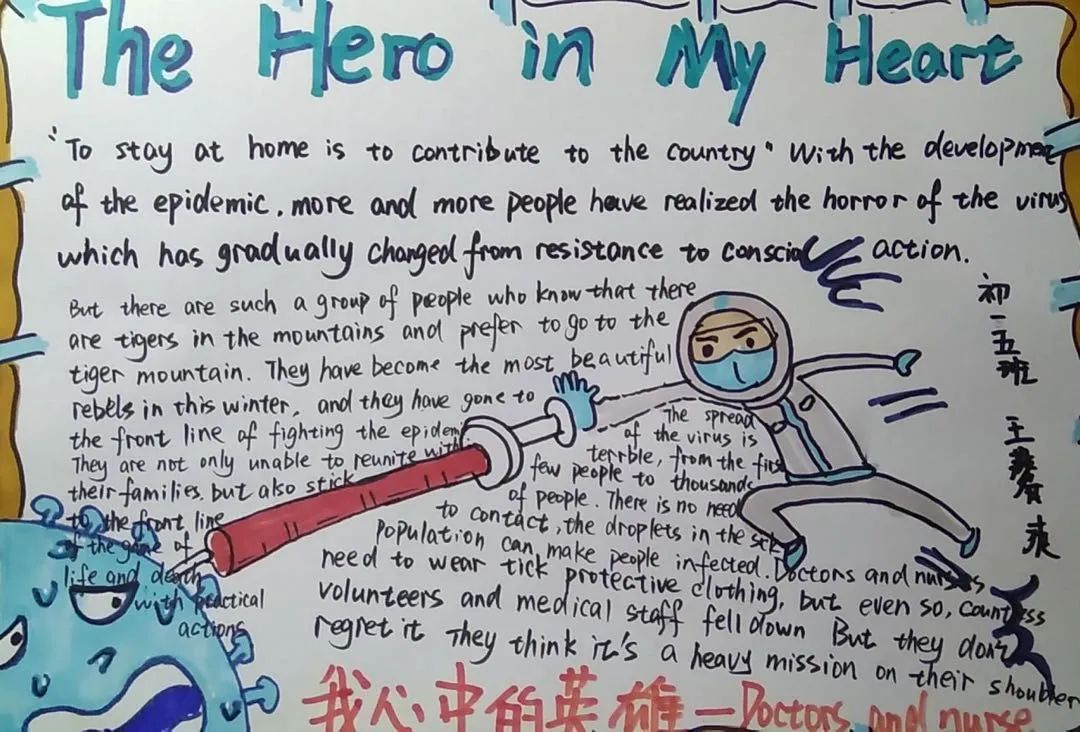 The Hero in My Heart
"To stay at home is to contribute to the country" With the developme
of the epidemic. more and more people have realized the horror of the virus
which has gradually changed from resistance to conscio action.
But there are such a group of people who know that there
are tigers in the mountains and prefer to go to the
tiger mountain. They have become the most beautiful
rebels in this winter, and they have gone to
the front line of fighting the epidem
They are not only unable to reunite with
their families. but also stick
to the front line
of the game of
life and death
with practical
actions
The spread
of the virus is
terrble, from the first
few people to thousands
of people. There is no need
to contact, the droplets in the
population can make people infected. Doctors and nurses
need to wear tick protective clothing, but even so, countless
volunteers and medical staff fell down But they don't
regret it They think it's a heavy mission on their shoulder
初一五班
王
我心中的英雄—Doctors and nurse